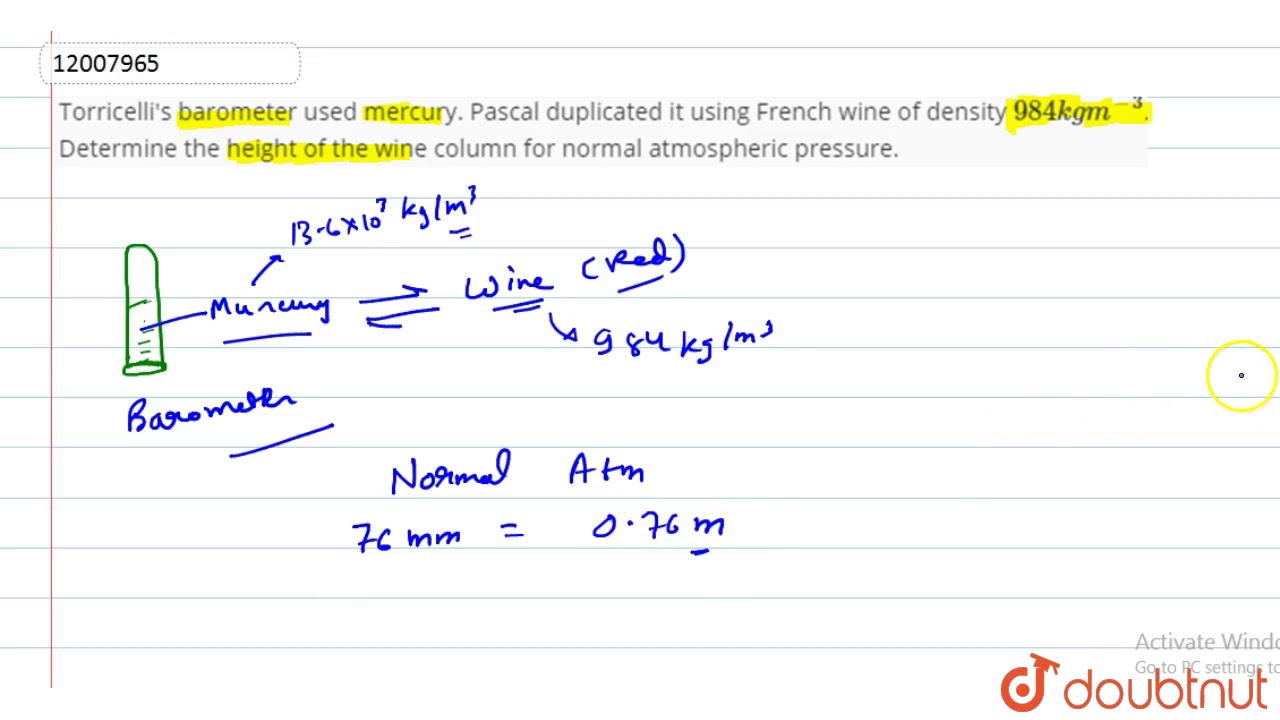 12007965
Torricelli's barometer used mercury. Pascal duplicated it using French wine of density 984kgm⁻³.
Determine the height of the wine column for normal atmospheric pressure.
13.6×10³ kg/m³
Mercury ⇌ Wine (Red)
984 kg/m³
Barometer
Normal Atm
76 mm = 0.76 m
Activate Windo
Go to PC settings to
doubtnut